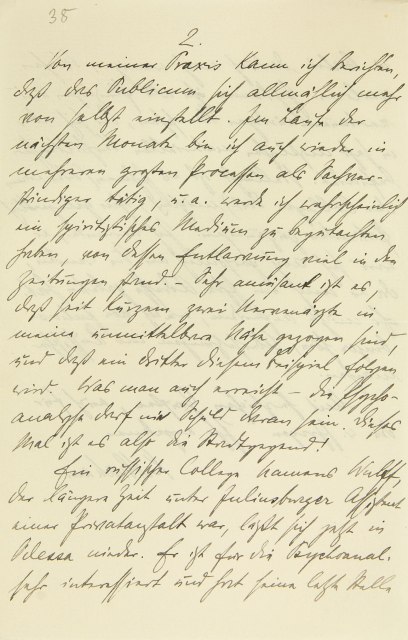 38
2.
Von meiner Praxis kann ich berichten,
daß das Publicum sich allmählich mehr
von selbst einstellt. Im Laufe der
nächsten Monate bin ich auch wieder in
mehreren großen Processen als Sachver-
ständiger tätig, u. a. werde ich wahrscheinlich
ein spiritistisches Medium zu begutachten
haben, von dessen Entlarvung viel in den
Zeitungen stand. – Sehr amüsant ist es,
daß seit Kurzem zwei Nervenärzte in
meine unmittelbare Nähe gezogen sind,
und daß ein dritter diesem Beispiel folgen
wird. Was man auch erreicht – die Psycho-
analyse darf nie Schuld daran sein. Dieses
Mal ist es also die Stadtgegend!
Ein russischer College namens Wulff,
der längere Zeit unter Juliusburger Assistent
einer Privatanstalt war, läßt sich jetzt in
Odessa nieder. Er ist für die Psychoanal.
sehr interessiert und hat seine letzte Stelle